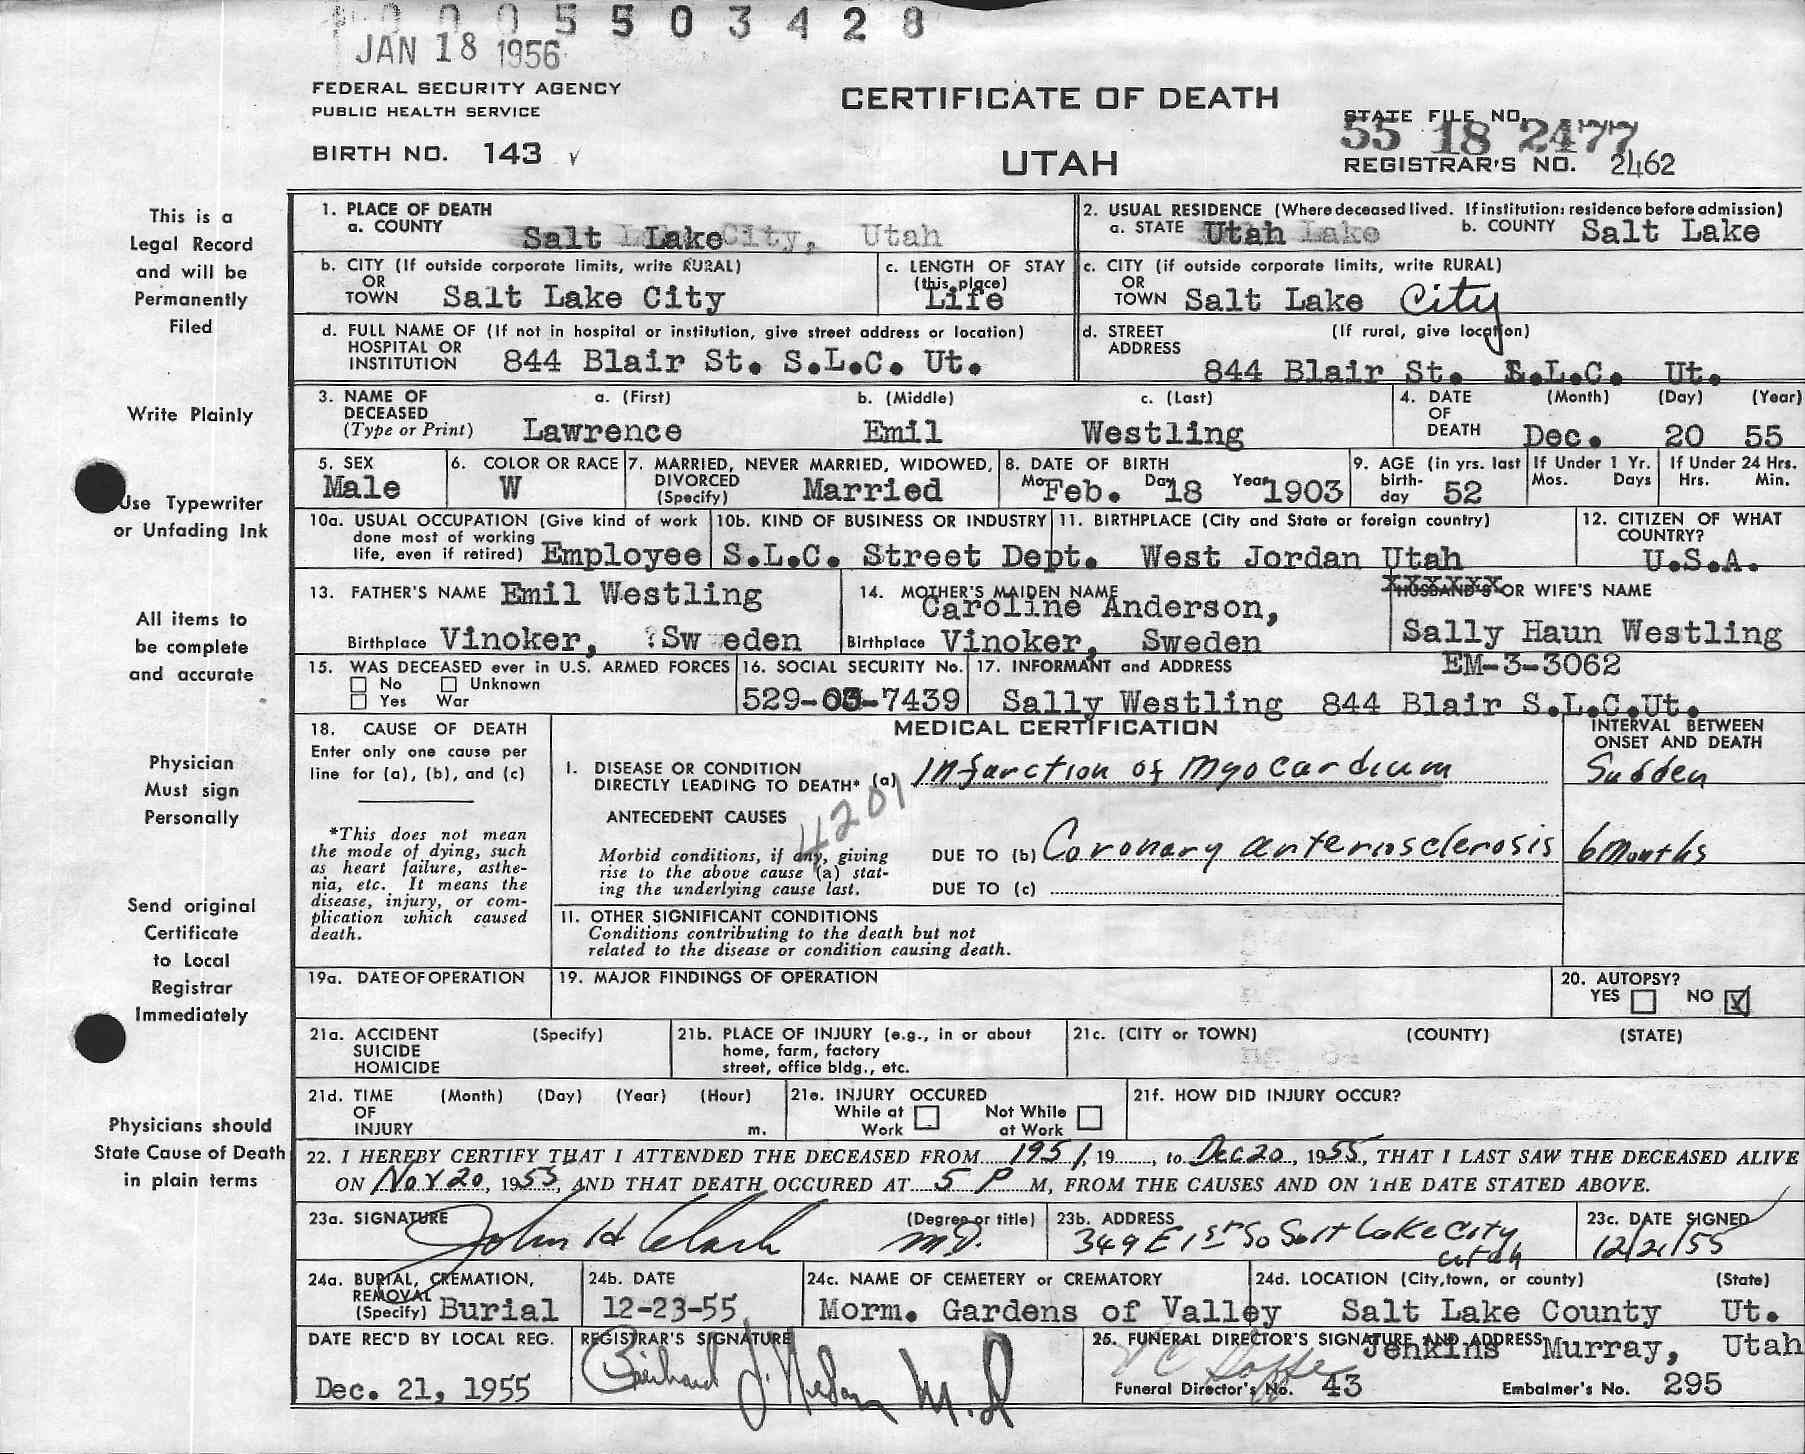 0005503428
JAN 18 1956
FEDERAL SECURITY AGENCY
PUBLIC HEALTH SERVICE
BIRTH NO. 143
CERTIFICATE OF DEATH
UTAH
STATE FILE NO.
55 18 2477
REGISTRAR'S NO. 2462
This is a
Legal Record
and will be
Permanently
Filed
Write Plainly
Use Typewriter
or Unfading Ink
All items to
be complete
and accurate
Physician
Must sign
Personally
Send original
Certificate
to Local
Registrar
Immediately
Physicians should
State Cause of Death
in plain terms
1. PLACE OF DEATH
a. COUNTY Salt Lake City, Utah
2. USUAL RESIDENCE (Where deceased lived. If institution: residence before admission)
a. STATE Utah Lake b. COUNTY Salt Lake
b. CITY (If outside corporate limits, write RURAL)
OR
TOWN Salt Lake City
c. LENGTH OF STAY
(this place)
Life
c. CITY (if outside corporate limits, write RURAL)
OR
TOWN Salt Lake City
d. FULL NAME OF (If not in hospital or institution, give street address or location)
HOSPITAL OR
INSTITUTION 844 Blair St. S.L.C. Ut.
d. STREET (If rural, give location)
ADDRESS
844 Blair St. S.L.C. Ut.
3. NAME OF a. (First) b. (Middle) c. (Last)
DECEASED
(Type or Print) Lawrence Emil Westling
4. DATE (Month) (Day) (Year)
OF
DEATH Dec. 20 55
5. SEX
Male
6. COLOR OR RACE
W
7. MARRIED, NEVER MARRIED, WIDOWED,
DIVORCED
(Specify) Married
8. DATE OF BIRTH
Mo. Feb. Day 18 Year 1903
9. AGE (in yrs. last
birth-
day 52
If Under 1 Yr.
Mos. Days
If Under 24 Hrs.
Hrs. Min.
10a. USUAL OCCUPATION (Give kind of work
done most of working
life, even if retired) Employee
10b. KIND OF BUSINESS OR INDUSTRY
S.L.C. Street Dept.
11. BIRTHPLACE (City and State or foreign country)
West Jordan Utah
12. CITIZEN OF WHAT
COUNTRY?
U.S.A.
13. FATHER'S NAME Emil Westling
Birthplace Vinoker, ?Sw eden
14. MOTHER'S MAIDEN NAME
Caroline Anderson,
Birthplace Vinoker, Sweden
XXXXXXX
HUSBAND'S OR WIFE'S NAME
Sally Haun Westling
15. WAS DECEASED ever in U.S. ARMED FORCES
No Unknown
Yes War
16. SOCIAL SECURITY No.
529-03-7439
17. INFORMANT and ADDRESS EM-3-3062
Sally Westling 844 Blair S.L.C.Ut.
18. CAUSE OF DEATH
Enter only one cause per
line for (a), (b), and (c)
*This does not mean
the mode of dying, such
as heart failure, asthe-
nia, etc. It means the
disease, injury, or com-
plication which caused
death.
MEDICAL CERTIFICATION
INTERVAL BETWEEN
ONSET AND DEATH
I. DISEASE OR CONDITION
DIRECTLY LEADING TO DEATH* (a) Infarction of Myocardium Sudden
4201
ANTECEDENT CAUSES
Morbid conditions, if any, giving
rise to the above cause (a) stat-
ing the underlying cause last.
DUE TO (b) Coronary arteriosclerosis 6 Months
DUE TO (c)
II. OTHER SIGNIFICANT CONDITIONS
Conditions contributing to the death but not
related to the disease or condition causing death.
19a. DATE OF OPERATION
19. MAJOR FINDINGS OF OPERATION
20. AUTOPSY?
YES NO
21a. ACCIDENT (Specify)
SUICIDE
HOMICIDE
21b. PLACE OF INJURY (e.g., in or about
home, farm, factory
street, office bldg., etc.
21c. (CITY or TOWN) (COUNTY) (STATE)
21d. TIME (Month) (Day) (Year) (Hour)
OF
INJURY m.
21e. INJURY OCCURED
While at Not While
Work at Work
21f. HOW DID INJURY OCCUR?
22. I HEREBY CERTIFY THAT I ATTENDED THE DECEASED FROM 1951, 19, to Dec 20, 1955, THAT I LAST SAW THE DECEASED ALIVE
ON Nov 20, 1955, AND THAT DEATH OCCURED AT 5 P M, FROM THE CAUSES AND ON THE DATE STATED ABOVE.
23a. SIGNATURE (Degree or title)
John H Clark M.D.
23b. ADDRESS
349 E 1st So Salt Lake City
Utah
23c. DATE SIGNED
12/21/55
24a. BURIAL, CREMATION,
REMOVAL
(Specify) Burial
24b. DATE
12-23-55
24c. NAME OF CEMETERY or CREMATORY
Morm. Gardens of Valley
24d. LOCATION (City, town, or county) (State)
Salt Lake County Ut.
DATE REC'D BY LOCAL REG.
Dec. 21, 1955
REGISTRAR'S SIGNATURE
M.D
25. FUNERAL DIRECTOR'S SIGNATURE AND ADDRESS
Jenkins Murray, Utah
Funeral Director's No. 43 Embalmer's No. 295